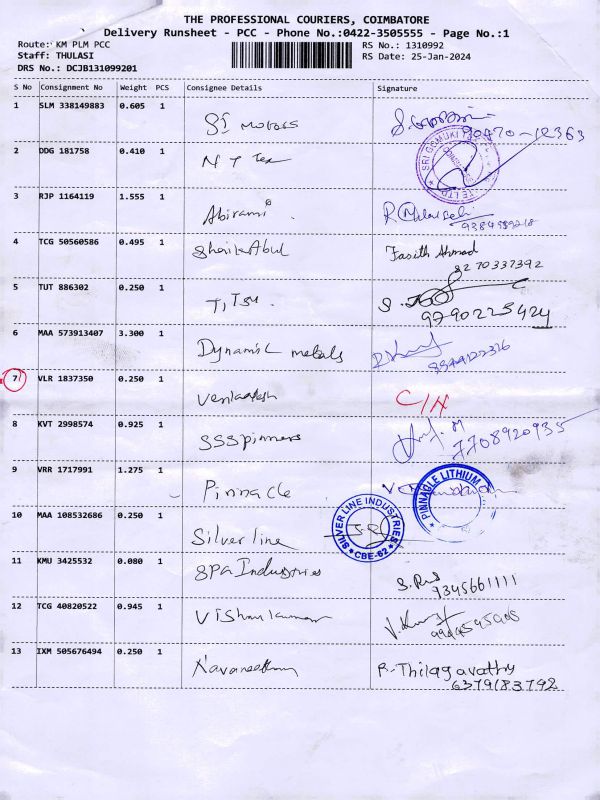 THE PROFESSIONAL COURIERS, COIMBATORE
Delivery Runsheet - PCC - Phone No.:0422-3505555 - Page No.:1
Route: KM PLM PCC
RS No.: 1310992
Staff: THULASI
RS Date: 25-Jan-2024
DRS No.: DCJB131099201
S No Consignment No Weight PCS Consignee Details Signature
1 SLM 338149883 0.605 1
motors
2 DDG 181758 0.410 1 N T Tex
SRI GOMUKI
3 RJP 1164119 1.555 1 Abirami
4 TCG 50560586 0.495 1 Shaik Abul Fasith Ahmad
8270337392
5 TUT 886302 0.250 1
9790225424
6 MAA 573913407 3.300 1 Dynamic metals
7 VLR 1837350 0.250 1 Venkatesh
8 KVT 2998574 0.925 1 SSSpinners
7708920935
9 VRR 1717991 1.275 1 Pinnacle
PINNACLE LITHIUM
10 MAA 108532686 0.250 1 Silver line
SILVER LINE INDUSTRIES
CBE-62
11 KMU 3425532 0.080 1 SPA Industries
9345661111
12 TCG 40820522 0.945 1 Vishnukumar
13 IXM 505676494 0.250 1 Navaneethan R. Thilagavathy
6379183792